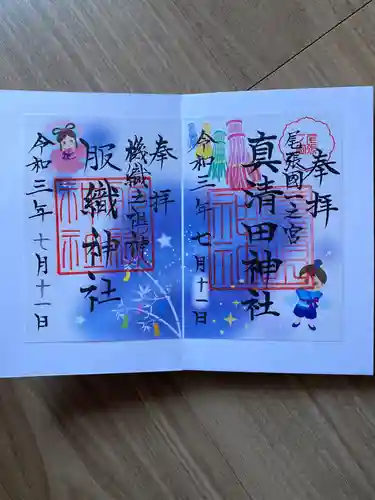 奉拝
尾張國一之宮
真清田神社
令和三年七月十一日
奉拝
機織之祖神
服織神社
令和三年七月十一日